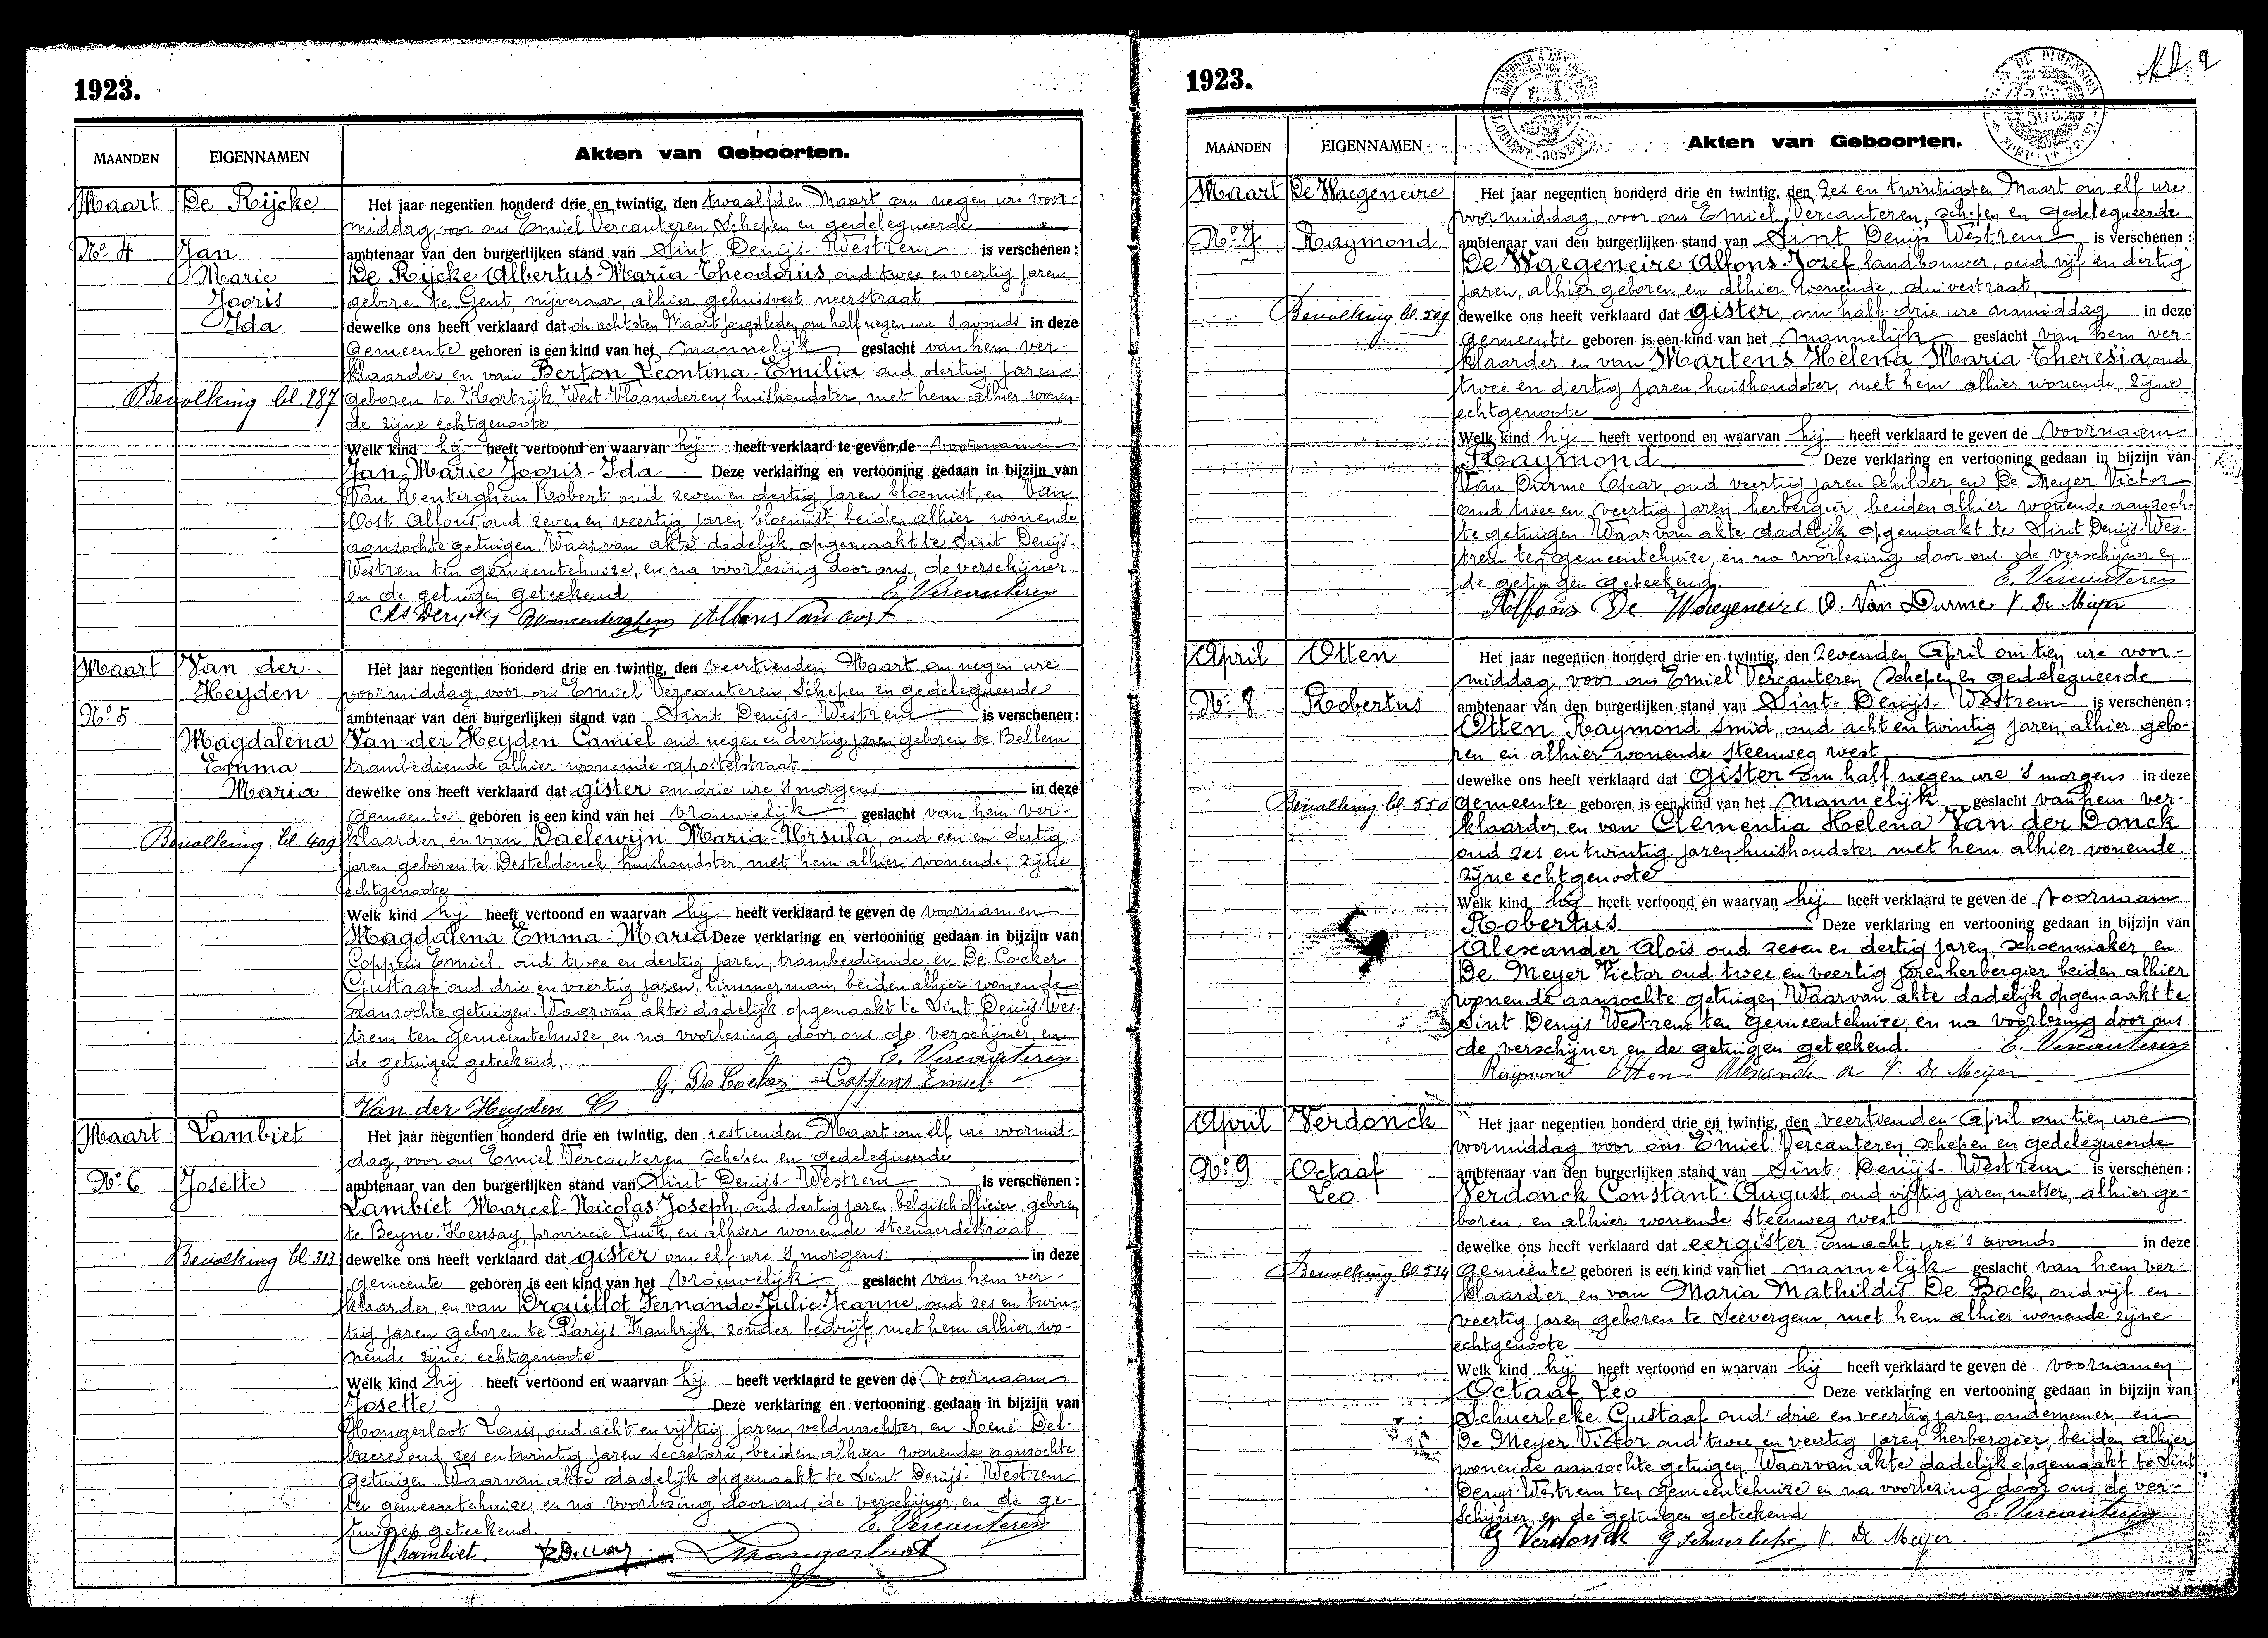 1923.
MAANDEN
EIGENNAMEN
Akten van Geboorten.
Maart
De Rijcke
No. 4
Jan
Marie
Jooris
Ida
Bevolking bl. 287
Het jaar negentien honderd drie en twintig, den twaalfden Maart om negen ure voor-
middag, voor ons Emiel Vercauteren, Schepen en gedelegueerde
ambtenaar van den burgerlijken stand van Sint Denijs-Westrem is verschenen:
De Rijcke Albertus-Maria-Theodorus, oud twee en veertig jaren
geboren te Gent, nijveraar, alhier gehuisvest neerstraat
dewelke ons heeft verklaard dat op achtsten Maart jongstleden om half negen ure 's avonds in deze
Gemeente geboren is een kind van het mannelijk geslacht van hem ver-
klaarder en van Berton Leontina-Emilia oud dertig jaren
geboren te Kortrijk, West-Vlaanderen, huishoudster, met hem alhier wonen-
de zijne echtgenoote
Welk kind hij heeft vertoond en waarvan hij heeft verklaard te geven de voornamen
Jan-Marie Jooris-Ida Deze verklaring en vertooning gedaan in bijzijn van
Van Renterghem Robert oud zeven en dertig jaren, bloemist, en Van
Oost Alfons, oud zeven en veertig jaren bloemist, beiden alhier wonende
aanzochte getuigen. Waarvan akte dadelijk opgemaakt te Sint Denijs-
Westrem ten gemeentehuize, en na voorlezing door ons, de verschijner
en de getuigen geteekend. E. Vercauteren
Alb Derycke RVanrenterghem Alfons Van Oost
Maart
Van der
Heyden
No. 5
Magdalena
Emma
Maria
Bevolking bl. 409
Het jaar negentien honderd drie en twintig, den veertienden Maart om negen ure
voormiddag, voor ons Emiel Vercauteren, Schepen en gedelegueerde
ambtenaar van den burgerlijken stand van Sint Denijs-Westrem is verschenen:
Van der Heyden Camiel oud negen en dertig jaren geboren te Bellem
trambediende alhier wonende apostelstraat
dewelke ons heeft verklaard dat gister om drie ure 's morgens in deze
Gemeente geboren is een kind van het vrouwelijk geslacht van hem ver-
klaarder, en van Daelewijn Maria-Ursula, oud een en dertig
jaren, geboren te Desteldonck, huishoudster, met hem alhier wonende, zijne
echtgenoote
Welk kind hij heeft vertoond en waarvan hij heeft verklaard te geven de voornamen
Magdalena Emma-Maria Deze verklaring en vertooning gedaan in bijzijn van
Coppens Emiel oud twee en dertig jaren, trambediende, en De Cocker
Gustaaf oud drie en veertig jaren, timmerman, beiden alhier wonende
aanzochte getuigen. Waarvan akte dadelijk opgemaakt te Sint Denijs-Wes-
trem ten gemeentehuize, en na voorlezing door ons, de verschijner, en
de getuigen geteekend. E. Vercauteren
G. De Cocker Coppens Emiel
Van der Heyden C
Maart
Lambiet
No. 6
Josette
Bevolking bl. 313
Het jaar negentien honderd drie en twintig, den zestienden Maart om elf ure voormid-
dag, voor ons Emiel Vercauteren schepen en gedelegueerde
ambtenaar van den burgerlijken stand van Sint Denijs-Westrem is verschenen:
Lambiet Marcel-Nicolas-Joseph, oud dertig jaren, belgisch officier, geboren
te Beyne-Heusay, provincie Luik, en alhier wonende steenaerdestraat
dewelke ons heeft verklaard dat gister om elf ure 's morgens in deze
gemeente geboren is een kind van het vrouwelijk geslacht van hem ver-
klaarder, en van Drouillot Fernande-Julie-Jeanne, oud zes en twin-
tig jaren geboren te Parijs Frankrijk, zonder bedrijf met hem alhier wo-
nende zijne echtgenoote
Welk kind hij heeft vertoond en waarvan hij heeft verklaard te geven de voornaam
Josette Deze verklaring en vertooning gedaan in bijzijn van
Hongerloot Louis, oud acht en vijftig jaren, veldwachter, en René Del-
baere oud zes en twintig jaren secretaris, beiden alhier wonende aanzochte
getuigen. Waarvan akte dadelijk opgemaakt te Sint Denijs-Westrem
ten gemeentehuize, en na voorlezing door ons, de verschijner, en de ge-
tuigen geteekend. E. Vercauteren
Lambiet.
1923.
MAANDEN
EIGENNAMEN
Akten van Geboorten.
Maart
De Waegeneire
No. 7
Raymond
Bevolking bl. 509
Het jaar negentien honderd drie en twintig, den zes en twintigsten Maart om elf ure
voormiddag, voor ons Emiel Vercauteren, schepen en gedelegueerde
ambtenaar van den burgerlijken stand van Sint Denijs Westrem is verschenen:
De Waegeneire Alfons-Jozef, landbouwer, oud vijf en dertig
jaren, alhier geboren, en alhier wonende, duivestraat,
dewelke ons heeft verklaard dat gister, om half drie ure namiddag in deze
Gemeente geboren is een kind van het mannelijk geslacht van hem ver-
klaarder, en van Martens Helena Maria-Theresia, oud
twee en dertig jaren, huishoudster, met hem alhier wonende, zijne
echtgenoote
Welk kind hij heeft vertoond en waarvan hij heeft verklaard te geven de voornaam
Raymond Deze verklaring en vertooning gedaan in bijzijn van
Van Durme Oscar, oud veertig jaren schilder, en De Meyer Victor
oud twee en veertig jaren, herbergier, beiden alhier wonende aanzoch-
te getuigen. Waarvan akte dadelijk opgemaakt te Sint Denijs-Wes-
trem ten gemeentehuize, en na voorlezing door ons, de verschijner en
de getuigen geteekend. E. Vercauteren
Alfons De Waegeneire O. Van Durme V. De Meijer
April
Otten
No. 8
Robertus
Bevolking bl. 550
Het jaar negentien honderd drie en twintig, den zevenden April om tien ure voor-
middag, voor ons Emiel Vercauteren schepen en gedelegueerde
ambtenaar van den burgerlijken stand van Sint-Denijs-Westrem is verschenen:
Otten Raymond, smid, oud acht en twintig jaren, alhier gebo-
ren en alhier wonende steenweg west
dewelke ons heeft verklaard dat gister om half negen ure 's morgens in deze
gemeente geboren is een kind van het mannelijk geslacht van hem ver-
klaarder, en van Clementia Helena Van der Donck
oud zes en twintig jaren, huishoudster met hem alhier wonende
zijne echtgenoote
Welk kind hij heeft vertoond en waarvan hij heeft verklaard te geven de voornaam
Robertus Deze verklaring en vertooning gedaan in bijzijn van
Alexander Alois oud zeven en dertig jaren schoenmaker, en
De Meyer Victor oud twee en veertig jaren herbergier beiden alhier
wonende aanzochte getuigen. Waarvan akte dadelijk opgemaakt te
Sint Denijs Westrem ten gemeentehuize, en na voorlezing door ons
de verschijner en de getuigen geteekend. E. Vercauteren
Raymond Otten Alexander A V. De Meijer
April
Verdonck
No. 9
Octaaf
Leo
Bevolking bl 534
Het jaar negentien honderd drie en twintig, den veertienden April om tien ure
voormiddag voor ons Emiel Vercauteren schepen en gedelegueerde
ambtenaar van den burgerlijken stand van Sint-Denijs-Westrem is verschenen:
Verdonck Constant-August, oud vijftig jaren, metser, alhier ge-
boren, en alhier wonende steenweg west
dewelke ons heeft verklaard dat eergister om acht ure 's avonds in deze
Gemeente geboren is een kind van het mannelijk geslacht van hem ver-
klaarder, en van Maria Mathildis De Bock, oud vijf en
veertig jaren geboren te Seevergem, met hem alhier wonende zijne
echtgenoote
Welk kind hij heeft vertoond en waarvan hij heeft verklaard te geven de voornamen
Octaaf Leo Deze verklaring en vertooning gedaan in bijzijn van
Schuerbeke Gustaaf oud drie en veertig jaren, ondernemer, en
De Meyer Victor oud twee en veertig jaren herbergier, beiden alhier
wonende aanzochte getuigen. Waarvan akte dadelijk opgemaakt te Sint
Denijs-Westrem ten gemeentehuize en na voorlezing door ons, de ver-
schijner en de getuigen geteekend E. Vercauteren
Verdonck G Schuerbeke V. De Meijer.